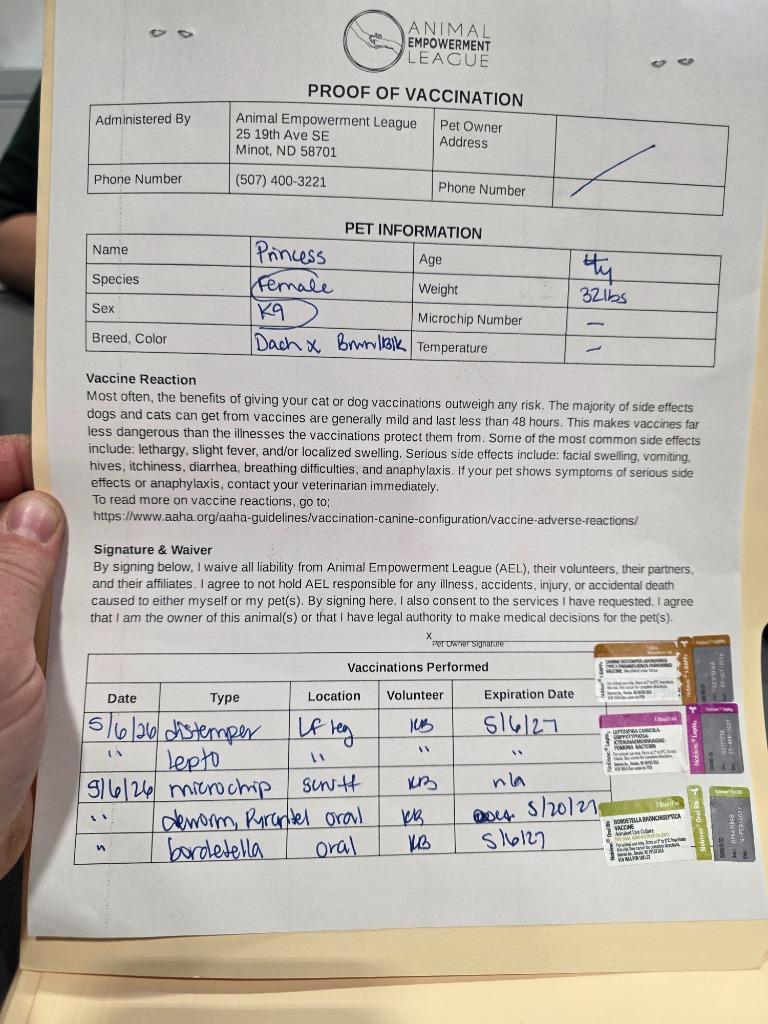 ANIMAL
EMPOWERMENT
LEAGUE
PROOF OF VACCINATION
Administered By
Animal Empowerment League
25 19th Ave SE
Minot, ND 58701
Pet Owner
Address
Phone Number
(507) 400-3221
Phone Number
PET INFORMATION
Name Princess Age 4y
Species Female Weight 32lbs
Sex K9 Microchip Number –
Breed, Color Dach x Brnn/Blk Temperature –
Vaccine Reaction
Most often, the benefits of giving your cat or dog vaccinations outweigh any risk. The majority of side effects
dogs and cats can get from vaccines are generally mild and last less than 48 hours. This makes vaccines far
less dangerous than the illnesses the vaccinations protect them from. Some of the most common side effects
include: lethargy, slight fever, and/or localized swelling. Serious side effects include: facial swelling, vomiting,
hives, itchiness, diarrhea, breathing difficulties, and anaphylaxis. If your pet shows symptoms of serious side
effects or anaphylaxis, contact your veterinarian immediately.
To read more on vaccine reactions, go to;
https://www.aaha.org/aaha-guidelines/vaccination-canine-configuration/vaccine-adverse-reactions/
Signature & Waiver
By signing below, I waive all liability from Animal Empowerment League (AEL), their volunteers, their partners,
and their affiliates. I agree to not hold AEL responsible for any illness, accidents, injury, or accidental death
caused to either myself or my pet(s). By signing here, I also consent to the services I have requested. I agree
that I am the owner of this animal(s) or that I have legal authority to make medical decisions for the pet(s).
X
Pet Owner Signature
Vaccinations Performed
Date Type Location Volunteer Expiration Date
5/6/26 distemper LF leg KB 5/6/27
" lepto " " "
5/6/26 microchip scruff KB n/a
" deworm, Pyrantel oral KB 5/20/27
" bordetella oral KB 5/6/27
CANINE DISTEMPER-ADENOVIRUS
TYPE 2-PARAINFLUENZA-PARVOVIRUS
VACCINE
LEPTOSPIRA CANICOLA-
GRIPPOTYPHOSA-
ICTEROHAEMORRHAGIAE-
POMONA BACTERIN
Nobivac® Lepto₄
BORDETELLA BRONCHISEPTICA
VACCINE
Avirulent Live Culture
Nobivac® Oral Bb